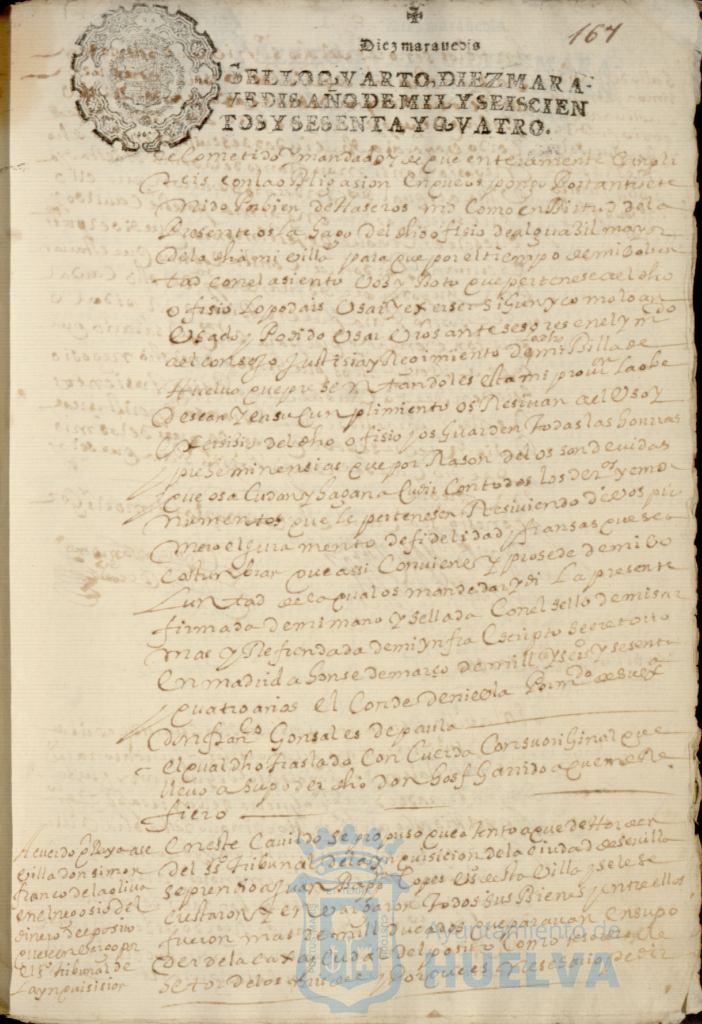 167
Diez maravedis
SELLO QVARTO, DIEZ MARA-
VEDIS, AÑO DE MIL Y SEISCIEN
TOS Y SESENTA Y QVATRO.
de Cometido y mandado y de que enteramente Cunpli
Reis con la obligasion
nido Por bien de Haseros md Como en Birtud de la
Presente os la hago del dho ofisio de alguasil mayor
de la dha mi villa para que por el tiempo de mi bolun
tad con el asiento Vos y Boto que pertenese al dho
ofisio lo podais Usar y exerser Sigun y como lo an
Usado y Podido Usar Vros antesesores en el y m
al consejo Justisia y Regimiento de la dha mi Billa de
Huelva que presentandoles esta mi provon la obe
descan y en su Cunplimiento os Resivan al Uso y
exersisio del dho ofisio y os Guarden Todas las honrras
preheminensias que por Rason del os son devidas
que os acudan y hagan acudir Con todos los deros y emo
numentos que le pertenesen Resiviendo de vos pri
mero el juramento de fidelidad y fiansas que se a
costunbrar que assi Conviene y prosede de mi bo
luntad de lo qual os mande dar y di La presente
firmada de mi mano y sellada Con el sello de mis ar
mas y Refrendada de mi ynfra escripto secretario
En madrid a honse de marso de mill y seisos y sesenta
y quatro años el Conde de niebla Por mdo de su exa
don franco Gonsales de paula
el qual dho traslado Con Cuerda Con su orihinal que
llevo a su poder dho don Josf Garrido a que me Re
fiero
En este Cavildo se propuso que atento a que de Horden
del Sto Tribunal de la Ynquisicion de la ciudad de sevilla
se prendio a Juan Lopes Vso desta Villa y se le se
cuestaron y en Bargaron Todos sus Bienes y entre ellos
fueron mas de mill ducados que paravan en su po
der de la caxa y Caudal del posito Como
Acuerdo q Vaya a se
villa don simon
franco de la oliva
en el negosio del
dinero del posito
que se enbargo por
el so tribunal de
la ynquisision
Ayuntamiento de
HUELVA